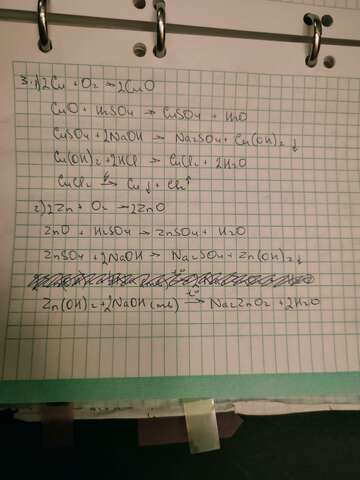 3. 1) 2Cu + O₂ → 2CuO
CuO + H₂SO₄ → CuSO₄ + H₂O
CuSO₄ + 2NaOH → Na₂SO₄ + Cu(OH)₂↓
Cu(OH)₂ + 2HCl → CuCl₂ + 2H₂O
CuCl₂ → Cu↓ + Cl₂↑
2) 2Zn + O₂ → 2ZnO
ZnO + H₂SO₄ → ZnSO₄ + H₂O
ZnSO₄ + 2NaOH → Na₂SO₄ + Zn(OH)₂↓
Zn(OH)₂ + 2NaOH → Na₂ZnO₂ + 2H₂O